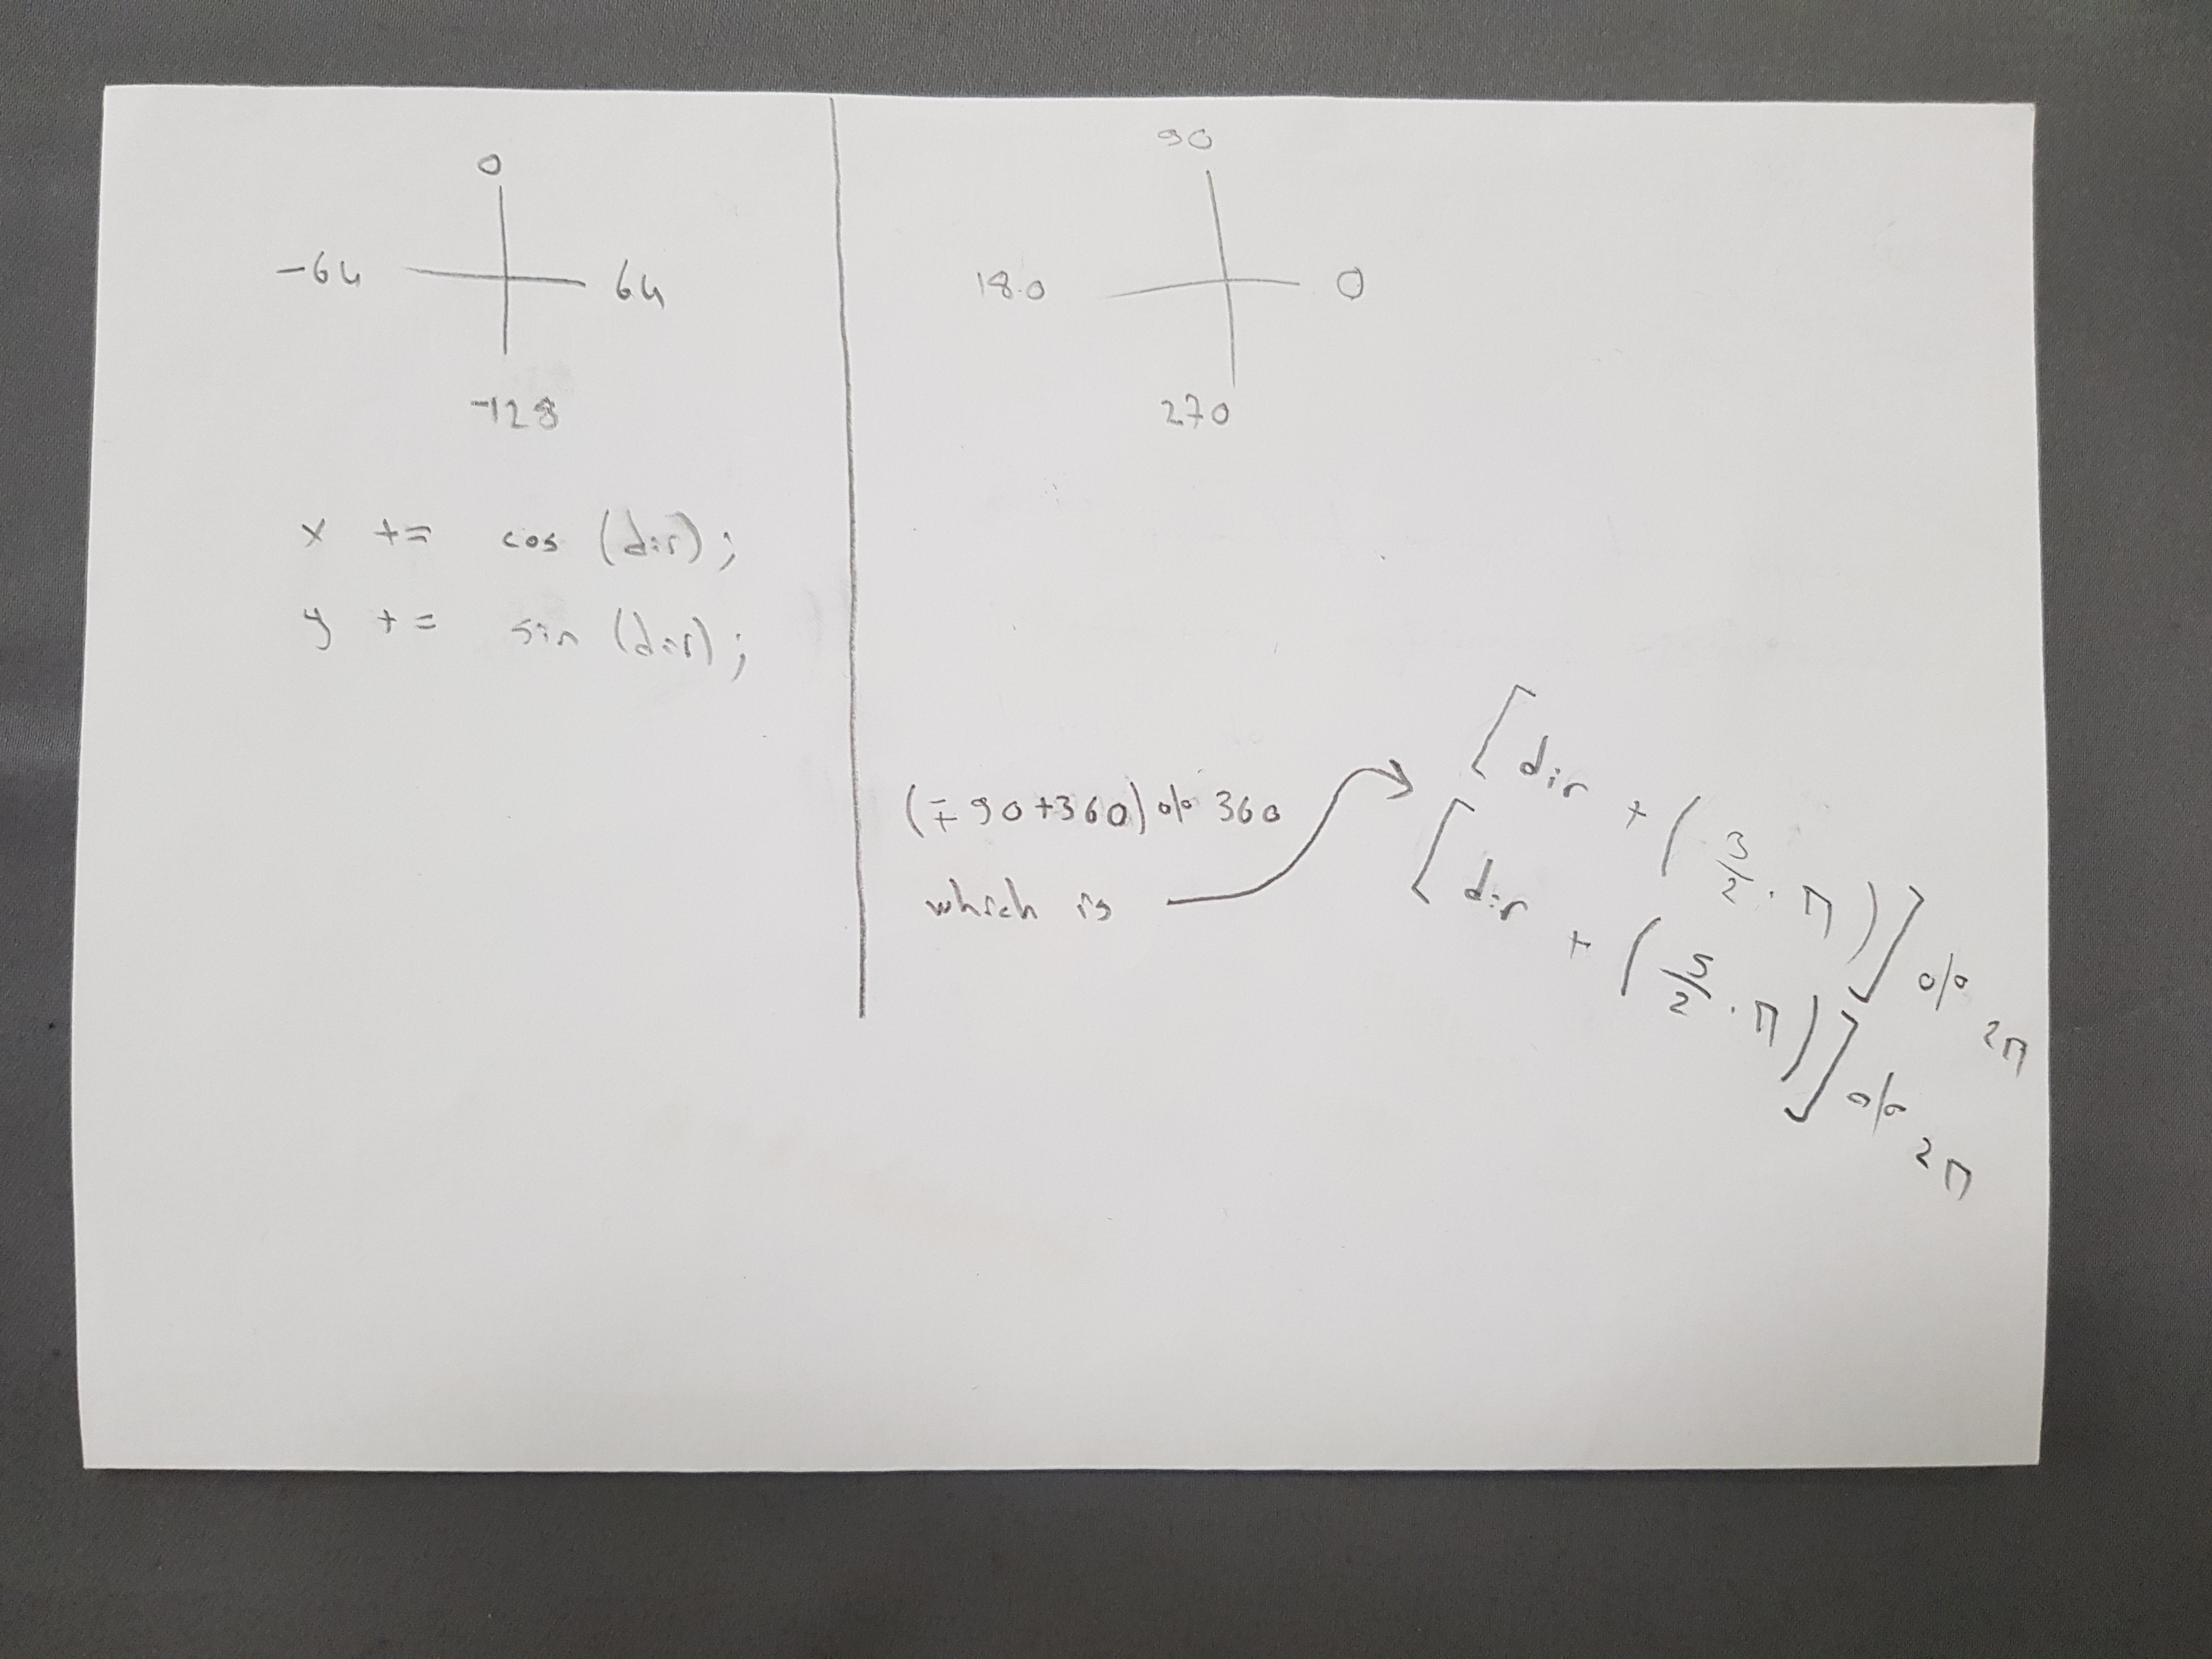 0
-64 64
-128
x += cos (dir);
y += sin (dir);
90
180 0
270
(∓90+360) % 360
which is
[dir + (3/2 · π)] % 2π
[dir + (5/2 · π)] % 2π